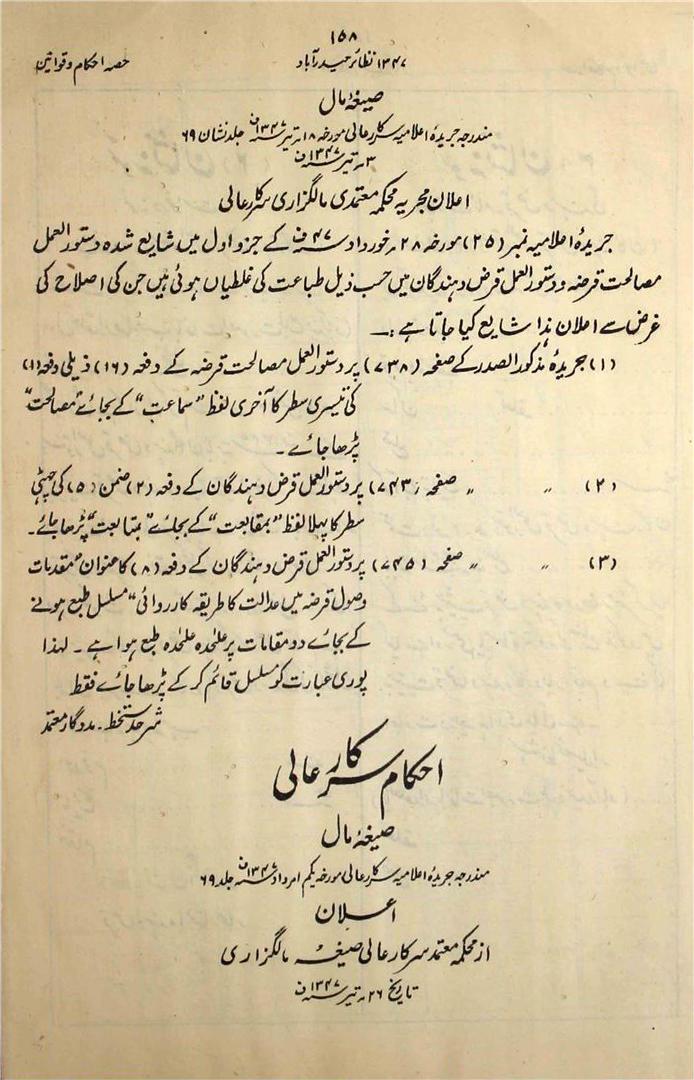 ۱۵۸
حصہ احکام وقوانین ۱۳۴۷ نظائر حیدرآباد
صیغۂ مال
مندرجہ جریدۂ اعلامیہ سرکار عالی مورخہ ۱۸؍ تیر ۱۳۴۷ف جلد نشان ۶۹
۳؍ تیر ۱۳۴۷ف
اعلان مجریہ محکمہ معتمدی مالگزاری سرکار عالی
جریدۂ اعلامیہ نمبر (۲۵) مورخہ ۲۸؍ خورداد ۴۷ف کے جزو اول میں شایع شدہ دستور العمل
مصالحت قرضہ و دستور العمل قرض دہندگان میں حسب ذیل طباعت کی غلطیاں ہوئی ہیں جن کی اصلاح کی
غرض سے اعلان ہذا شایع کیا جاتا ہے :۔
(۱) جریدۂ مذکور الصدر کے صفحہ (۷۳۸) پر دستور العمل مصالحت قرضہ کے دفعہ (۱۶) ذیلی دفعہ (۱)
کی تیسری سطر کا آخری لفظ "سماعت" کے بجائے "مصالحت"
پڑھا جائے۔
(۲) " " صفحہ (۷۴۳) پر دستور العمل قرض دہندگان کے دفعہ (۲) ضمن (۵) کی چھٹی
سطر کا پہلا لفظ "بمقابعت" کے بجائے "بمتابعت" پڑھا جائے۔
(۳) " " صفحہ (۷۴۵) پر دستور العمل قرض دہندگان کے دفعہ (۸) کا عنوان "مقدمات
وصول قرضہ میں عدالت کا طریقہ کارروائی" مسلسل طبع ہونے
کے بجائے دو مقامات پر علحٰدہ علحٰدہ طبع ہوا ہے ۔ لہذا
پوری عبارت کو مسلسل قائم کر کے پڑھا جائے فقط
شرحد ستخط ۔ مددگار معتمد
احکام سرکار عالی
صیغۂ مال
مندرجہ جریدۂ اعلامیہ سرکار عالی مورخہ یکم امرداد ۱۳۴۷ف جلد ۶۹
اعلان
از محکمہ معتمد سرکار عالی صیغہ مالگزاری
تاریخ ۲۶؍ تیر ۱۳۴۷ف